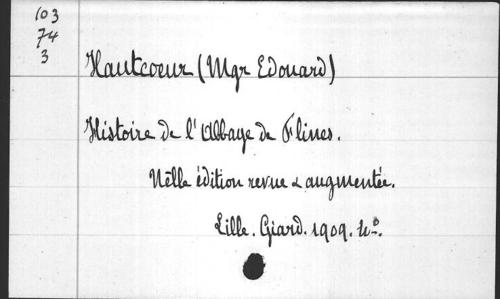 103
74
3
Hautcoeur (Mgr Edouard)
Histoire de l'Abbaye de Flines.
Nelle édition revue & augmentée.
Lille. Giard. 1909. 4º.